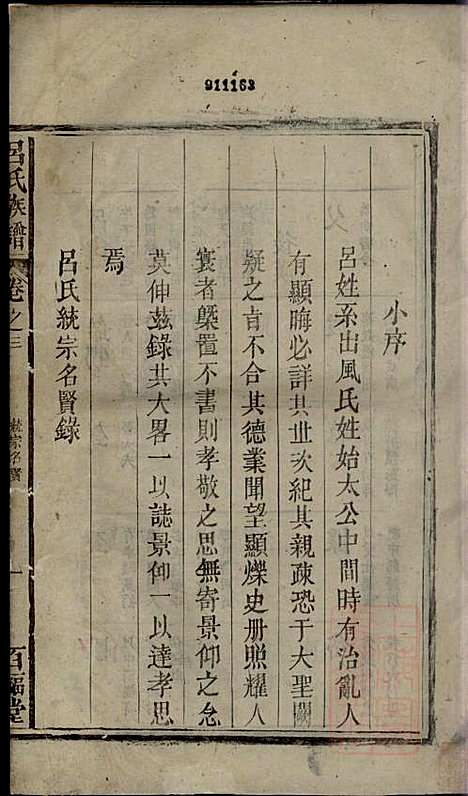 911163
小序
呂姓系出風氏姓始太公中間時有治亂人
有顯晦必詳其世次紀其親疎恐于大聖闕
疑之旨不合其德業聞望顯爍史册照耀人
寰者槩置不書則孝敬之思無寄景仰之忱
莫伸茲錄其大畧一以誌景仰一以達孝思
焉
呂氏統宗名賢錄
呂氏族譜
卷之三
統宗名賢
一
百福堂